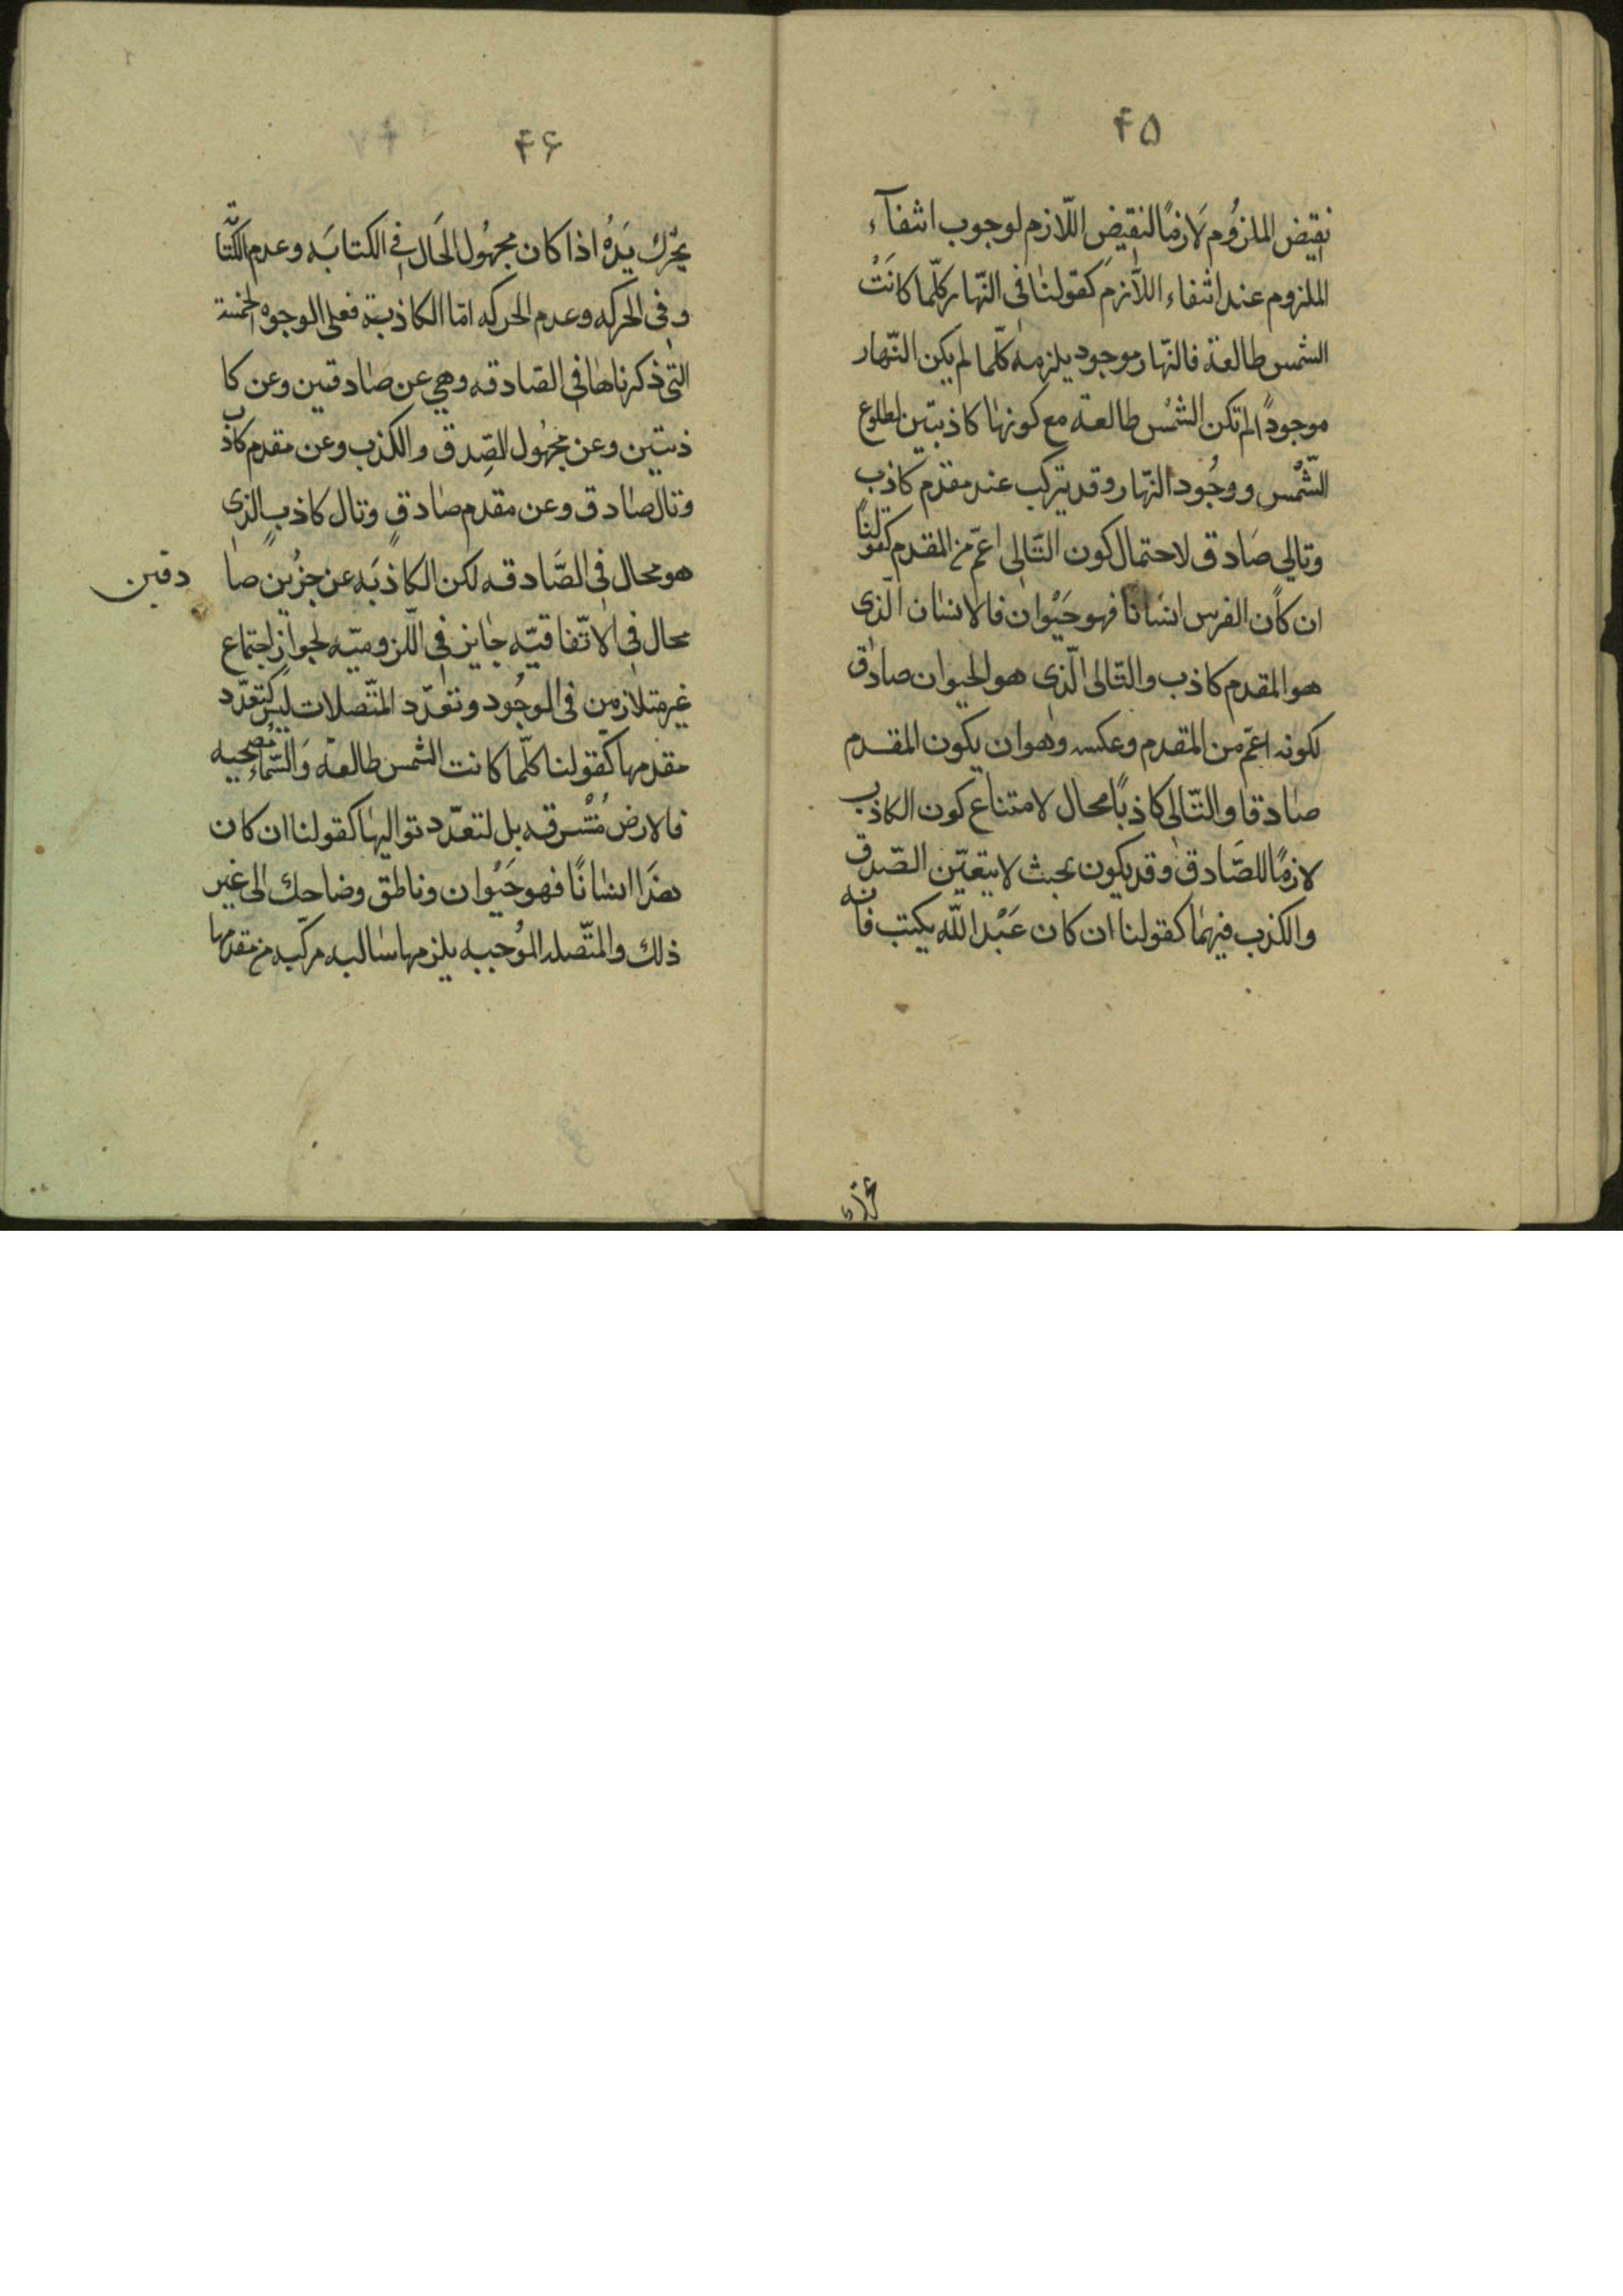 ۴۵
نقيض الملزُوم لَازمًا لنقيض اللّازم لوجوب انتفآء
الملزوم عند انتفاء اللّازم كقولنا فى النّهار كلّما كانَتْ
الشمس طالعة فالنّهار موجود يلزمه كلّما لم يكن النّهار
موجودًا لم تكن الشمْس طالعة مع كونها كاذبتين لطلوع
الشّمْس ووجُود النّهار وقد يتركب عند مقدم كاذب
وتالي صَادق لاحتمال كون التّالى اعمّ من المقدم كقولنا
ان كان الفرس انسانا فهو حَيْوان فالانسان الّذى
هو المقدم كاذب والتّالى الّذى هو الحيوان صادق
لكونه اعمّ من المقدم وعكسه وهو ان يكون المقدم
صادقا والتّالى كاذبًا محال لامتناع كون الكاذب
لازمًا للصَّادق وقد يكون بحيث لا يتعيّن الصّدق
والكذب فيهما كقولنا ان كان عَبْد اللّه يكتب فانه
۴۶
يحْرك يَدهُ اذا كان مجهُول الحَال فى الكتابَه وعدم الكتَابة
وفى الحركه وعدم الحركه امّا الكاذبة فعلى الوجوه الخمسة
التى ذكرناها فى الصّادقه وهى عن صادقين وعن كا
ذبتين وعن مجهُول الصِّدق والكذب وعن مقدم كاذب
وتال صادق وعن مقدم صادقٍ وتال كاذبٍ الذى
هو محال فى الصَّادقه لكن الكاذبَه عن جزئين صا دقين
محال فى الاتّفاقيّه جايز فى اللّزوميّه لجواز اجتماع
غير متلازمين فى الوجُود وتعدّد المتّصلات ليس كتعدّد
مقدمها كقولنا كلّما كانت الشمس طالعة وَالسّماء مُصْحيه
فالارض مُشْرقه بل لتعدّد تواليها كقولنا ان كان
هذَا انسَانًا فهو حَيْوان وناطق وضاحك الى غير
ذلك والمتّصله المُوجبه يلزمها سالبه مركّبه من مقدمها